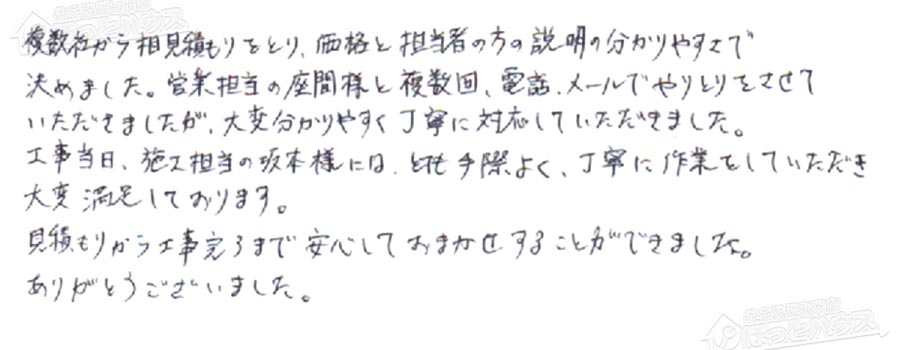 複数社から相見積もりをとり、価格と担当者の方の説明の分かりやすさで
決めました。営業担当の座間様と複数回、電話、メールでやりとりをさせて
いただきましたが、大変分かりやすく丁寧に対応していただきました。
工事当日、施工担当の坂本様には、とても手際よく、丁寧に作業をしていただき
大変満足しております。
見積もりから工事完了まで安心しておまかせすることができました。
ありがとうございました。
ほっとハウス